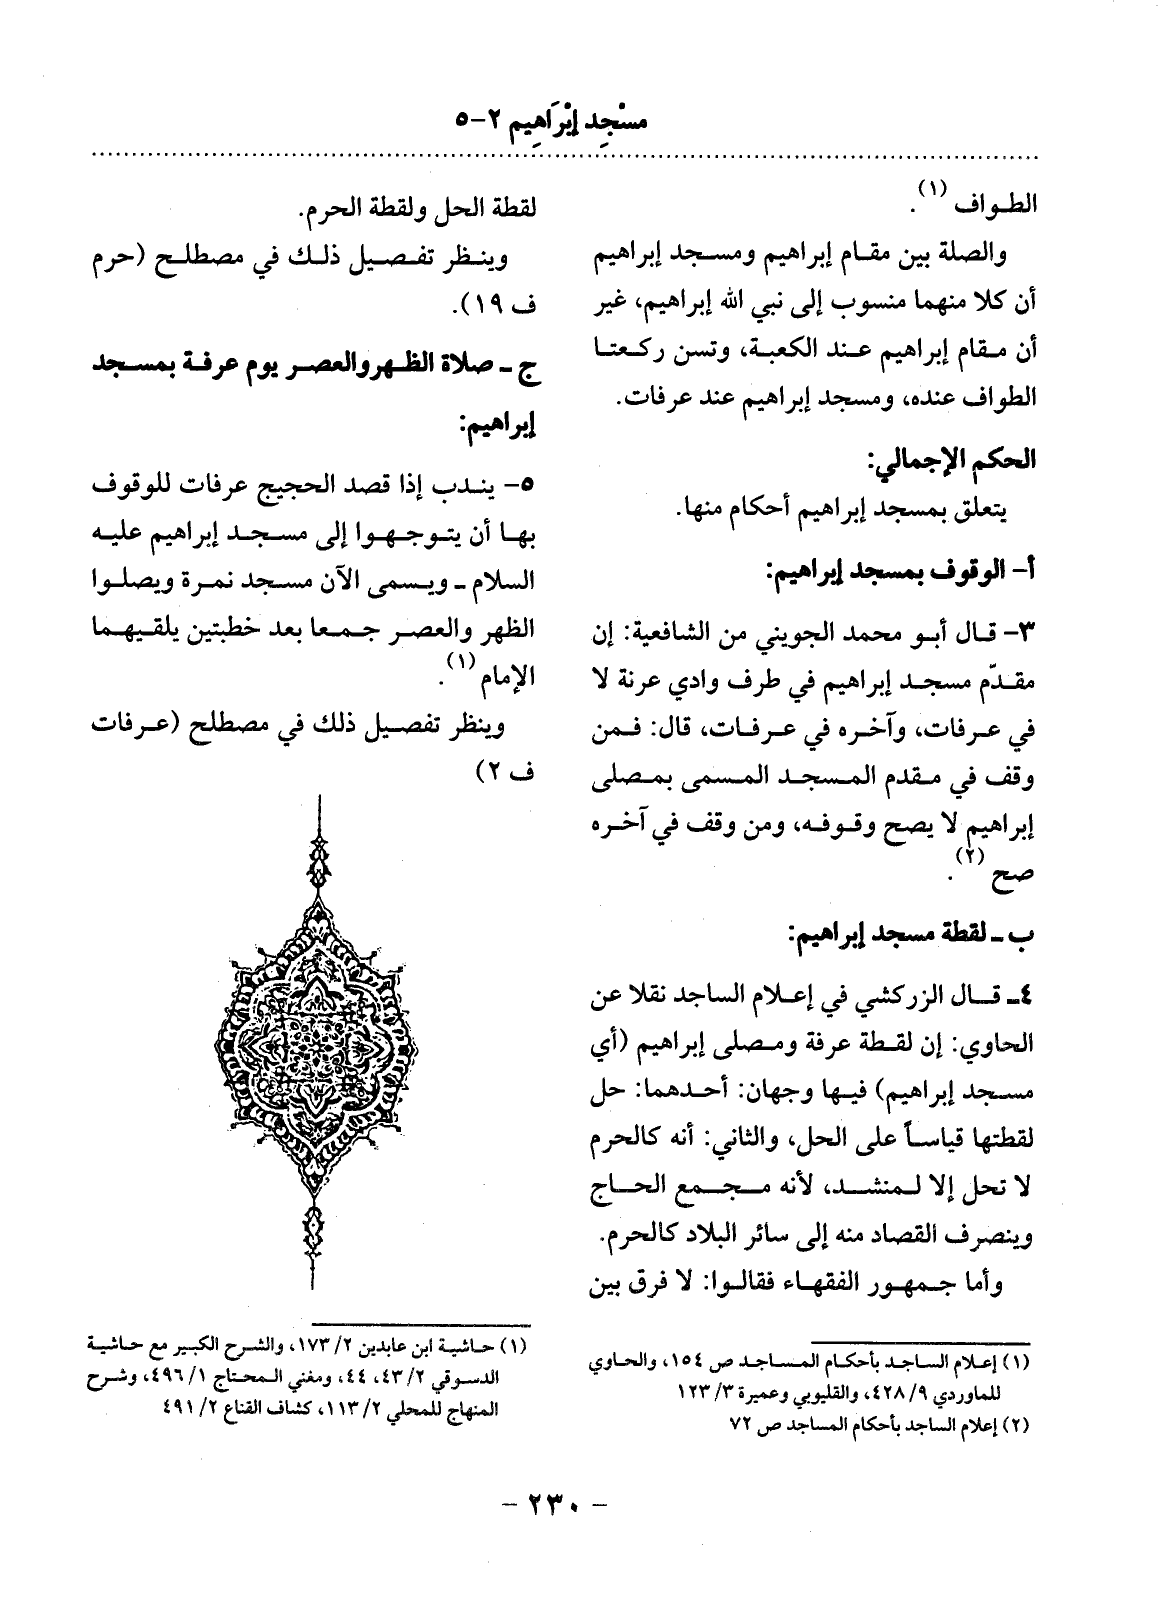 مسْجِد إبْرَاهِيم ٢-٥
الطواف (١).
والصلة بين مقام إبراهيم ومسجد إبراهيم
أن كلا منهما منسوب إلى نبي الله إبراهيم، غير
أن مقام إبراهيم عند الكعبة، وتسن ركعتا
الطواف عنده، ومسجد إبراهيم عند عرفات.
الحكم الإجمالي:
يتعلق بمسجد إبراهيم أحكام منها.
أ- الوقوف بمسجد إبراهيم:
٣- قال أبو محمد الجويني من الشافعية: إن
مقدّم مسجد إبراهيم في طرف وادي عرنة لا
في عرفات، وآخره في عرفات، قال: فمن
وقف في مقدم المسجد المسمى بمصلى
إبراهيم لا يصح وقوفه، ومن وقف في آخره
صح (٢).
ب - لقطة مسجد إبراهيم:
٤- قال الزركشي في إعلام الساجد نقلا عن
الحاوي: إن لقطة عرفة ومصلى إبراهيم (أي
مسجد إبراهيم) فيها وجهان: أحدهما: حل
لقطتها قياساً على الحل، والثاني: أنه كالحرم
لا تحل إلا لمنشد، لأنه مجمع الحاج
وينصرف القصاد منه إلى سائر البلاد كالحرم.
وأما جمهور الفقهاء فقالوا: لا فرق بين
(١) إعلام الساجد بأحكام المساجد ص ١٥٤، والحاوي
للماوردي ٩/ ٤٢٨، والقليوبي وعميرة ٣/ ١٢٣
(٢) إعلام الساجد بأحكام المساجد ص ٧٢
لقطة الحل ولقطة الحرم.
وينظر تفصيل ذلك في مصطلح (حرم
ف ١٩).
ج - صلاة الظهر والعصر يوم عرفة بمسجد
إبراهيم:
٥- يندب إذا قصد الحجيج عرفات للوقوف
بها أن يتوجهوا إلى مسجد إبراهيم عليه
السلام - ويسمى الآن مسجد نمرة ويصلوا
الظهر والعصر جمعا بعد خطبتين يلقيهما
الإمام (١).
وينظر تفصيل ذلك في مصطلح (عرفات
ف ٢)
(١) حاشية ابن عابدين ٢/ ١٧٣، والشرح الكبير مع حاشية
الدسوقي ٢/ ٤٣، ٤٤، ومغني المحتاج ١/ ٤٩٦، وشرح
المنهاج للمحلي ٢/ ١١٣، كشاف القناع ٢/ ٤٩١
- ٢٣٠ -